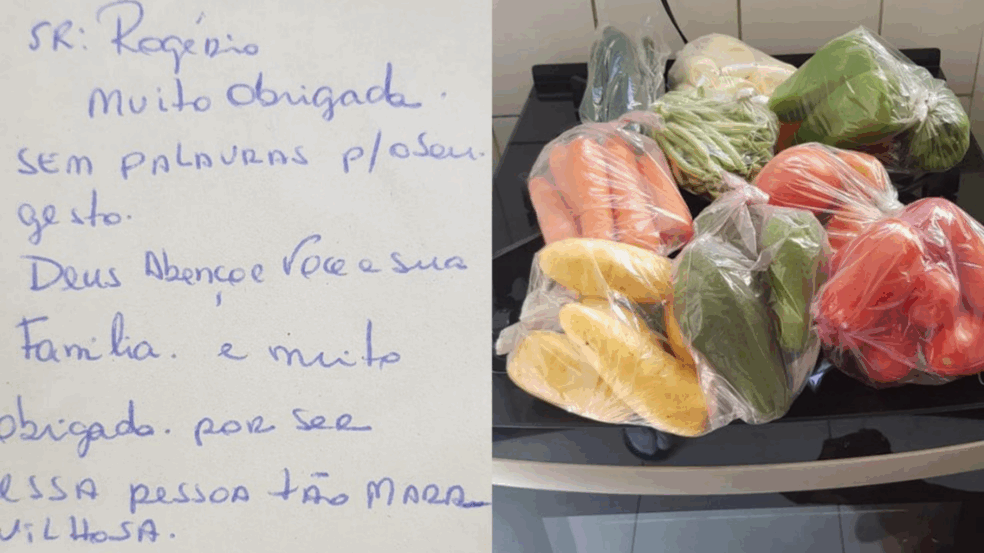 SR: Rogério
muito obrigada.
SEM PALAVRAS p/ o seu.
gesto.
Deus Abençoe Voce e sua
Família. e muito
obrigada. por ser
essa pessoa tão MARA
VILHOSA.